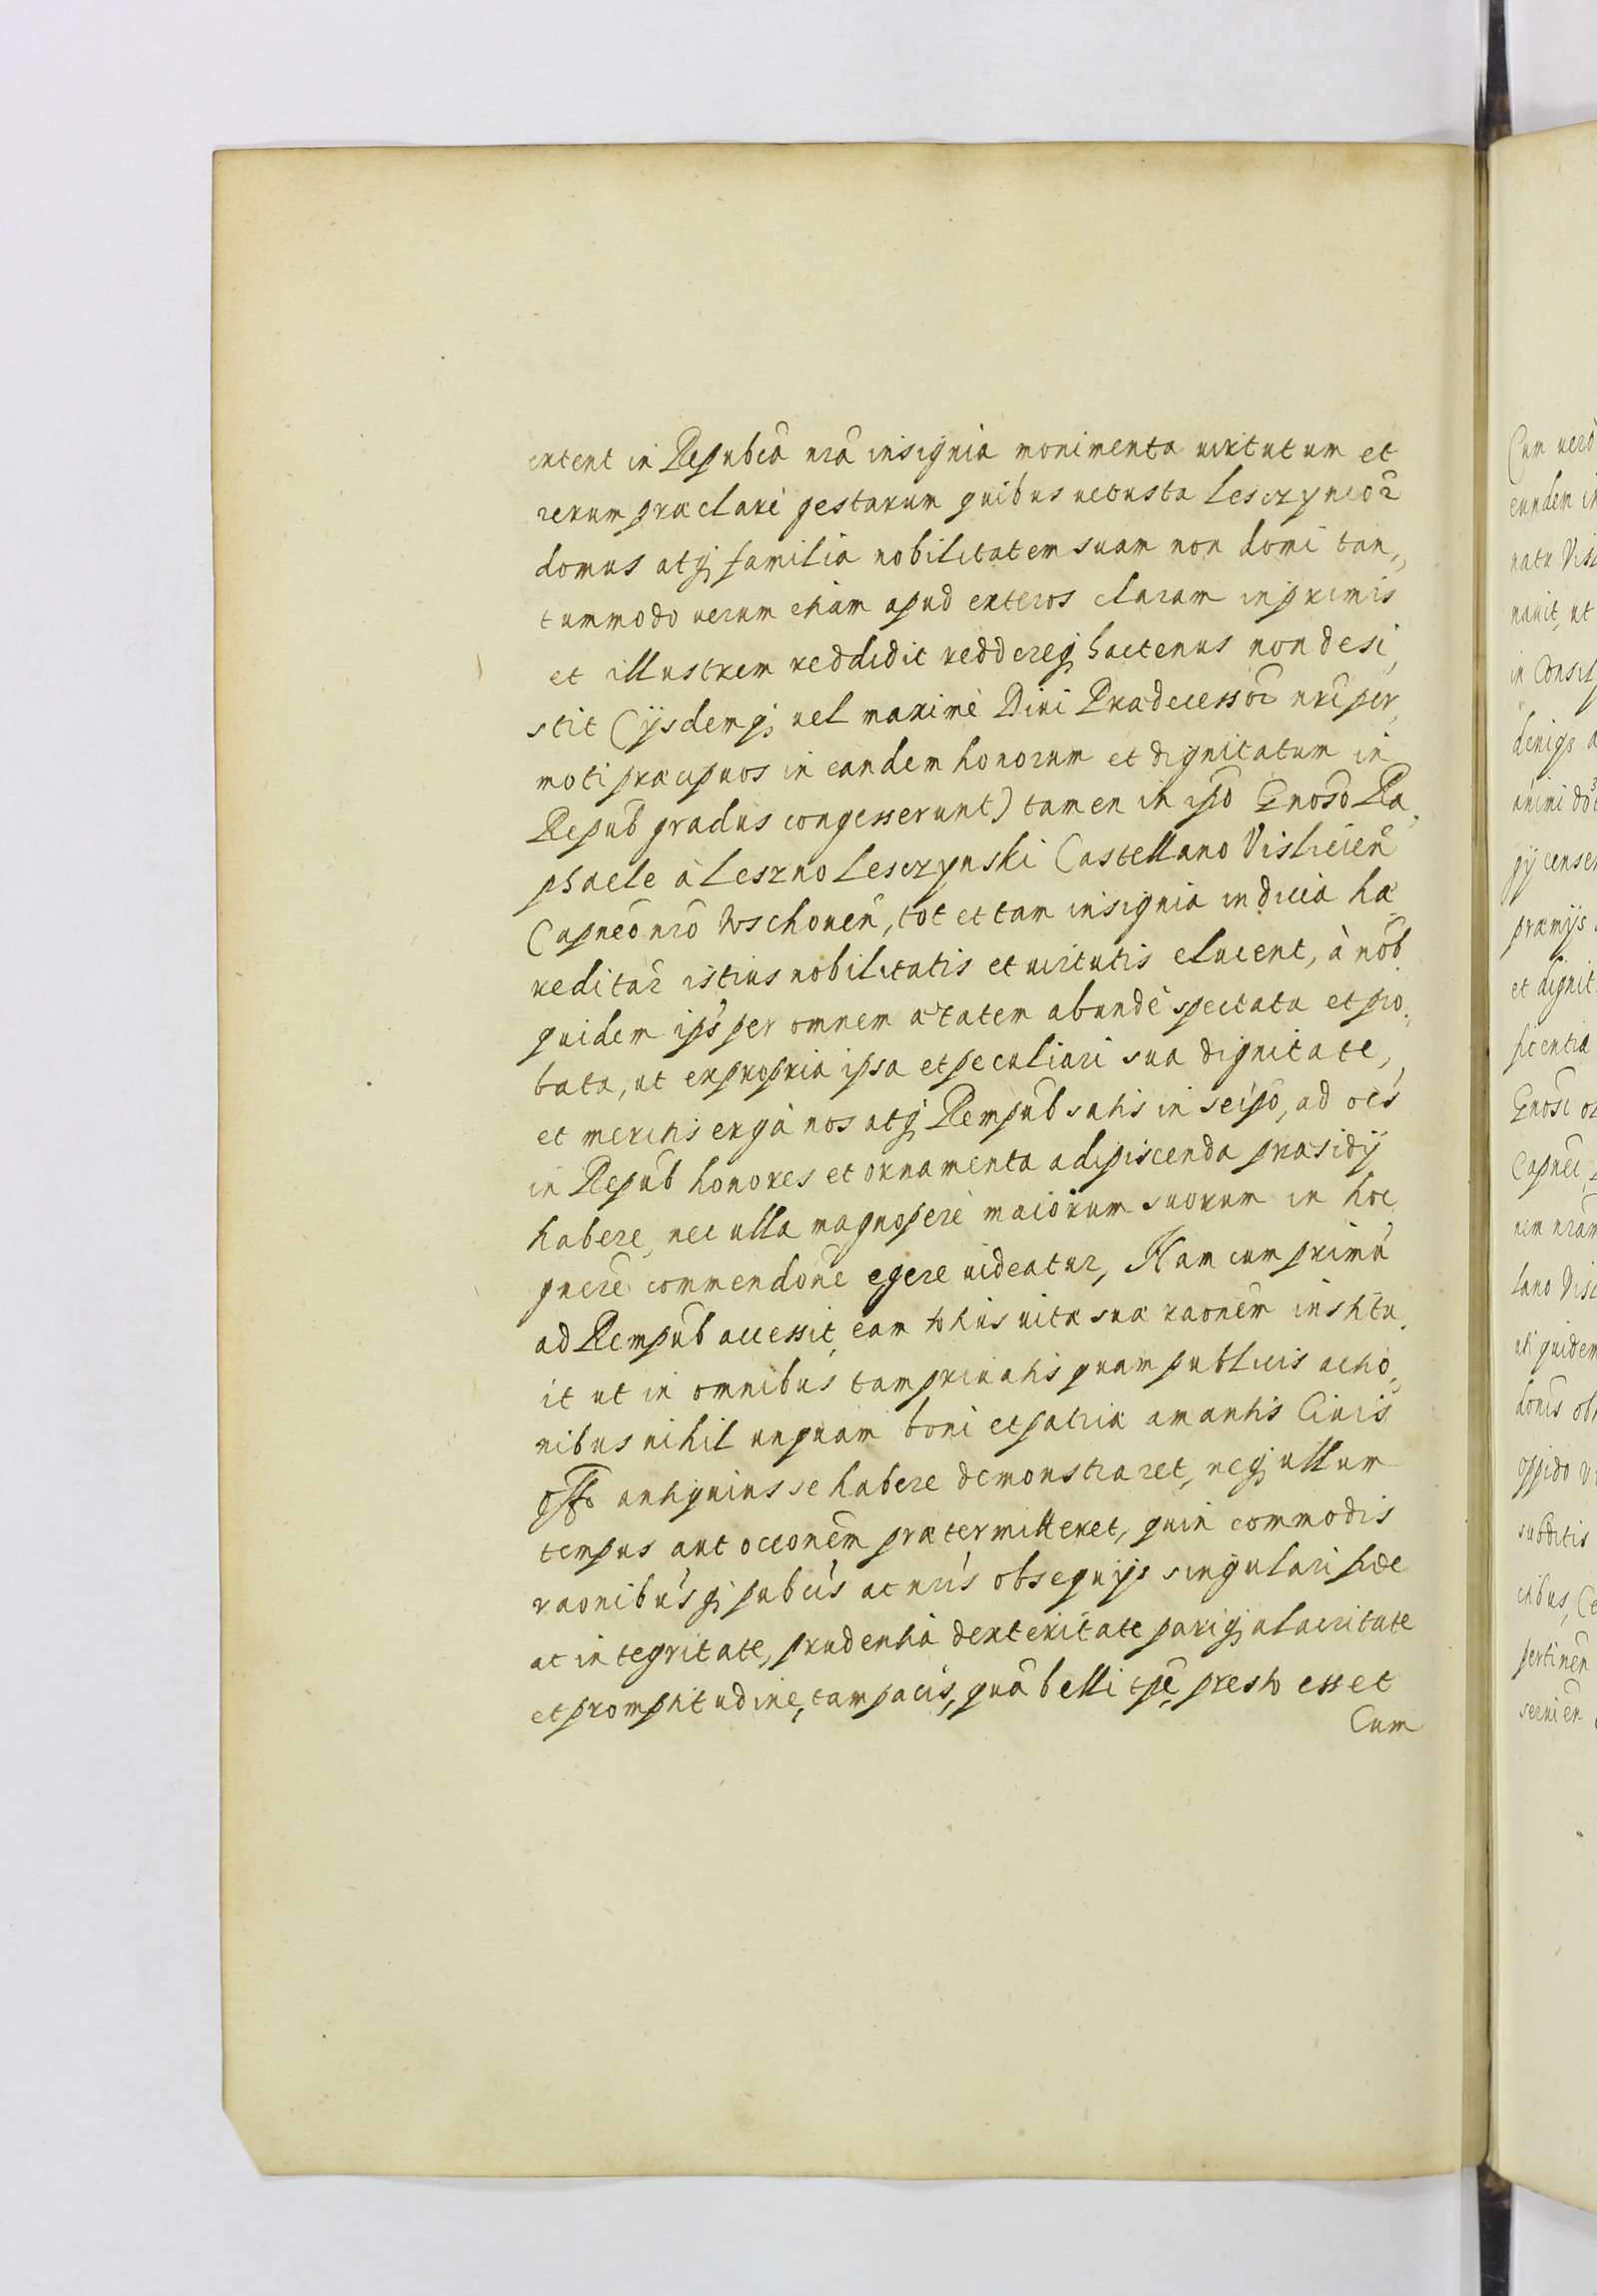 extent in Repubcā nrā insignia monimenta uirtutum et
rerum præclarè gestarum quibus uetusta Lesczyncor̄
domus atq; familia nobilitatem suam non domi tan,,
tummodo uerum etiam apud exteros claram inprimis
et illustrem reddidit reddereq; hactenus non desi,
stit (ijsdemq; uel maximè Diui Prædecessōr nr̄i per,
moti præcipuos in eandem honorum et dignitatum in
Repub̄ gradus congesserunt) tamen in ip̄o Gn̄oso Ra,
phaele à Leszno Lesczynski Castellano Visliciēn
Capn̄eo nr̄o Wschouēn, tot et tam insignia indicia hæ
reditar̄ istius nobilitatis et uirtutis elucent, à nōb
quidem ip̄s per omnem ætatem abundè spectata et pro,
bata, ut ex propria ipsa et peculiari sua dignitate,
et meritis ergà nos atq; Rempub̄ satis in seip̄o, ad oēs
in Repub̄ honores et ornamenta adipiscenda præsidij
habere, nec ulla magnoperè maiorum suorum in hoc
gn̄ere commendōne egere uideatur, Nam cum primū
ad Rempub̄ accessit, eam totius uitæ suæ raōnem institu,
it ut in omnibus tam priuatis quam publicis actio,
nibus nihil unquam boni et patriæ amantis Ciuis
off̄o antiquius se habere demonstraret, neq; ullum
tempus aut occōnem prætermitteret, quin commodis
raōnibusq; pub̄cis ac nr̄is obsequijs singulari fide
ac integritate, prudentia dexteritate pariq; alacritate
et promptitudine, tam pacis, quā belli tp̄e, presto esset
Cum
Cum uerò
eundem in
natu Visl
nauit, ut
in Consil
deniqȝ a
animi do
gij censer
præmijs
et dignit
ficentia
Gn̄osi
Capnei,
nem nram
lano Visl
uti quidem
donis ob
oppido
subditis
itibus, Ce
pertinēn
seruiēn